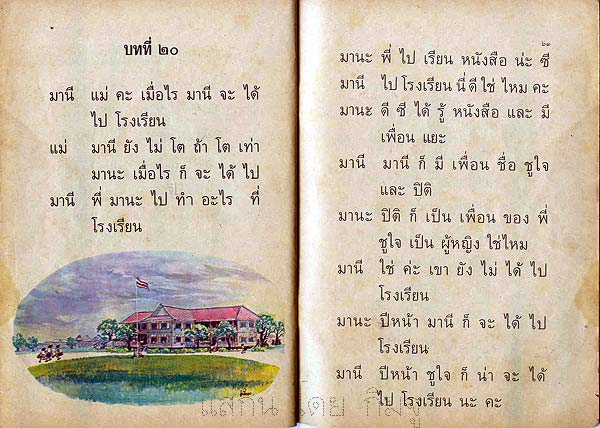 บทที่ ๒๐
มานี แม่ คะ เมื่อไร มานี จะ ได้
ไป โรงเรียน
แม่ มานี ยัง ไม่ โต ถ้า โต เท่า
มานะ เมื่อไร ก็ จะ ได้ ไป
มานี พี่ มานะ ไป ทำ อะไร ที่
โรงเรียน
๖๑
มานะ พี่ ไป เรียน หนังสือ น่ะ ซี
มานี ไป โรงเรียน นี่ ดี ใช่ ไหม คะ
มานะ ดี ซี ได้ รู้ หนังสือ และ มี
เพื่อน แยะ
มานี มานี ก็ มี เพื่อน ชื่อ ชูใจ
และ ปิติ
มานะ ปิติ ก็ เป็น เพื่อน ของ พี่
ชูใจ เป็น ผู้หญิง ใช่ไหม
มานี ใช่ ค่ะ เขา ยัง ไม่ ได้ ไป
โรงเรียน
มานะ ปีหน้า มานี ก็ จะ ได้ ไป
โรงเรียน
มานี ปีหน้า ชูใจ ก็ น่า จะ ได้
ไป โรงเรียน นะ คะ
แสกน โดย